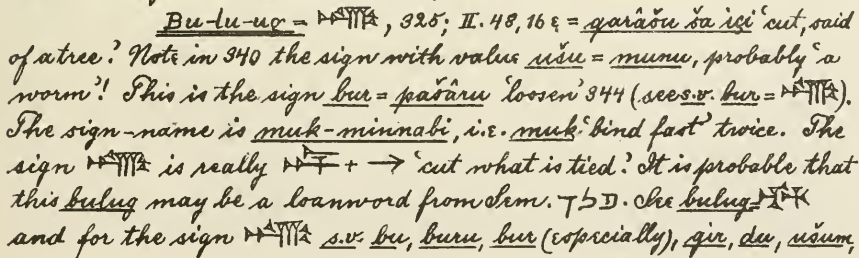 Bu-lu-ug = , 325; II. 48, 16 ε = garâšu ša içi 'cut, said
of a tree.' Note in 340 the sign with value ušu = munu, probably 'a
worm'! This is the sign bur = pašâru 'loosen' 344 (see s.v. bur = ).
The sign-name is muk-minnabi, i.e. muk 'bind fast' twice. The
sign is really + 'cut what is tied.' It is probable that
this bulug may be a loanword from Sem. פלך. See bulug =
and for the sign s.v. bu, buru, bur (especially), gir, du, ušum,